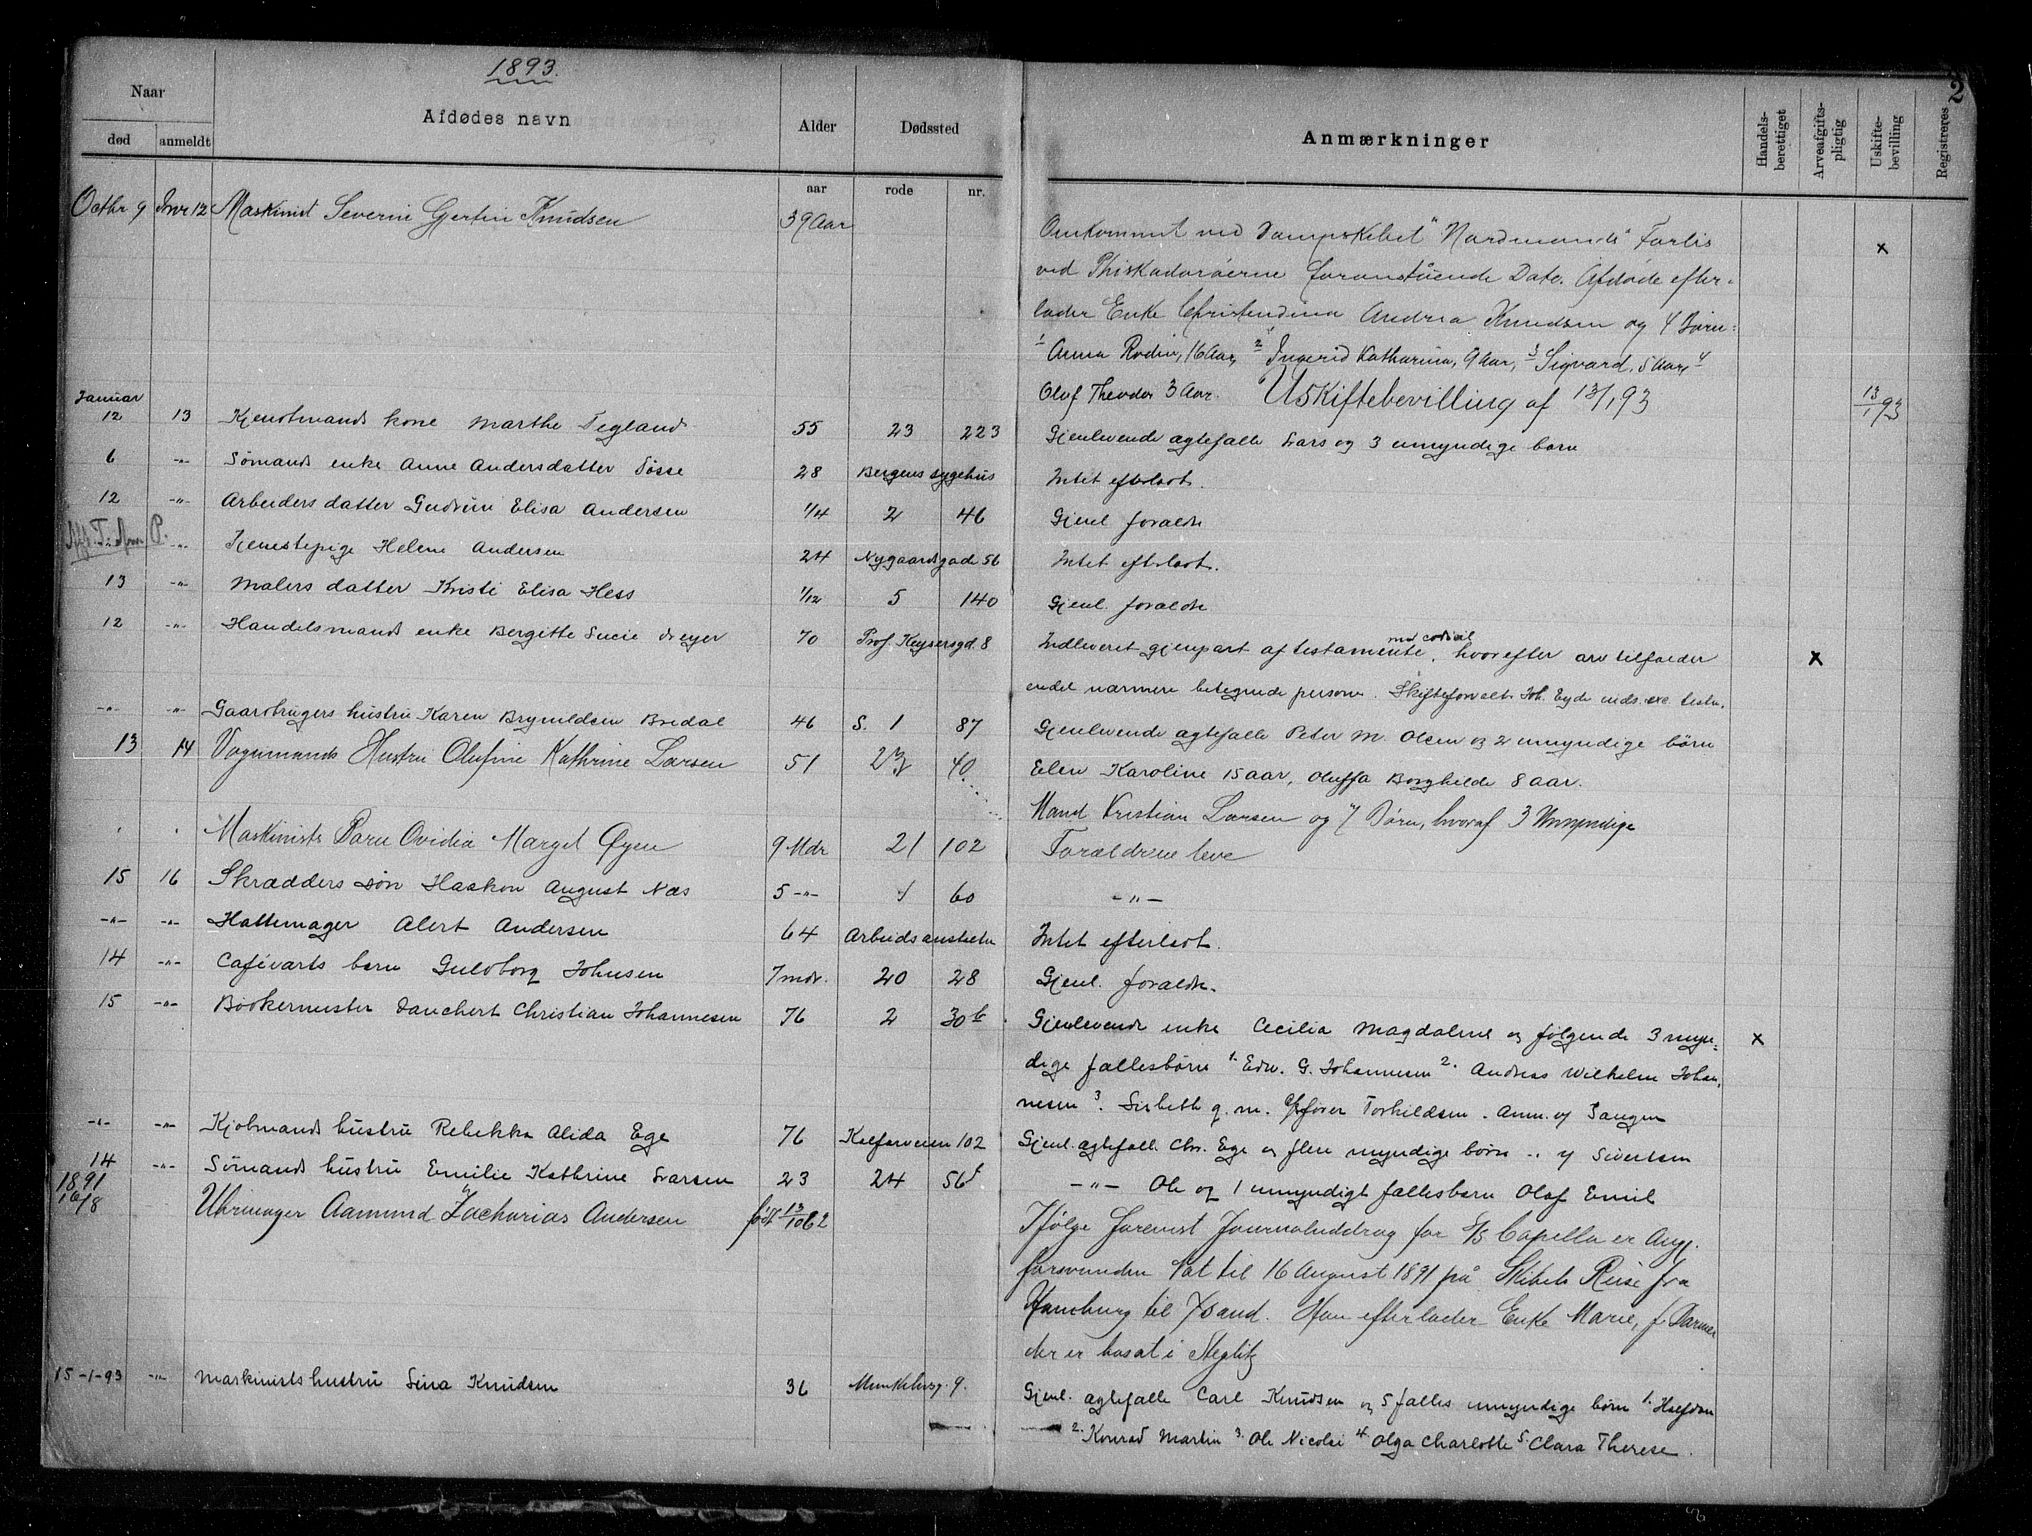 1893.
2
Naar
Afdødes navn
Alder
Dødssted
Anmærkninger
Handels-berettiget
Arveafgifts-pligtig
Uskifte-bevilling
Registreres
død anmeldt
aar rode nr.
Octbr 9 Jnvr 12 Maskinist Severin Gjertin Knudsen 39 Aar
Omkommet ved Dampskibet "Nordmands" Forlis x
ved Phiskadorøerne foranstående Dato. Afdøde efter-
lader Enke Christendina Andrea Knudsen og 4 Børn:
1 Anna Rodin, 16 Aar, 2 Ingerid Katharina, 9 Aar, 3 Sigvard, 5 Aar, 4
Olof Theodor 3 Aar. Uskiftebevilling af 13/1 93 13/1 93
Januar
12 13 Kjøbmands kone Marthe Tegland 55 23 223 Gjenlevende ægtefælle Lars og 3 umyndige børn
6 -"- Sømands enke Anne Andersdatter Søsse 28 Bergens sygehus Intet efterladt.
12 -"- Arbeiders datter Gudrun Elisa Andersen 1/4 2 46 Gjenl forældre
-"- Tjenestepige Helene Andersen 24 Nygaardsgade 56 Intet efterladt.
13 -"- Malers datter Kristi Elisa Hess 1/12 5 140 Gjenl. forældre
12 -"- Handelsmands enke Bergitte Lucie Dreyer 70 Prof. Keysersgd. 8 Indleveret gjenpart af testamente med codicil, hvorefter arv tilfalder x
endel nærmere betegnede personer. Skifteforvalt. Joh. Eyde inds. exc. testm.
-"- -"- Gaardbrugers hustru Karen Brynildsen Bredal 46 S. 1 87 Gjenlevende ægtefælle Peter M. Olsen og 2 umyndige børn
Elen Karoline 15 aar, Oluffa Borghilde 8 aar.
13 14 Vognmands Hustru Olufine Kathrine Larsen 51 23 40 Mand Kristian Larsen og 7 Børn, hvoraf 3 Umyndige
Maskinists Barn Ovidia Margit Øyen 9 Mdr 21 102 Forældrene leve
15 16 Skrædders søn Haakon August Næs 5 -"- 1 60 -"-
-"- -"- Hattemager Alert Andersen 64 Arbeidsanstalten Intet efterladt.
14 -"- Caféværts barn Guldborg Johnsen 7 mdr. 20 28 Gjenl. forældre.
15 -"- Bødkermester Danchert Christian Johannesen 76 2 30 b Gjenlevende enke Cecilia Magdalene og følgende 3 myn- x
dige fællesbørn 1. Edv. G. Johannesen 2. Andreas Wilhelm Johan-
nesen 3. Lisbeth g. m. Torkildsen. Anm. af
-"- -"- Kjøbmands hustru Rebekka Alida Ege 76 Kalfarveien 102 Gjenl. ægtefælle Chr. Ege og flere myndige børn -"- af Sivertsen
14 -"- Sømands hustru Emilie Kathrine Larsen 23 24 56 f -"- Ole og 1 umyndigt fællesbarn Olaf Emil
1891
16/8 Uhrmager Aamund Zacharias Andersen født 13/10 62 Ifølge forevist Journaluddrag for S/S Capella er Angj.
forsvunden Nat til 16 August 1891 på Skibets Reise fra
Hamburg til Island. Han efterlader Enke Marie, f. Darmer
der er bosat i Steglitz
15-1-93 -"- Maskinists hustru Lina Knudsen 36 Munkebæg. 9. Gjenl. ægtefælle Carl Knudsen og 5 fælles umyndige børn 1. Halfdan
2. Konrad Martin 3. Ole Nicolai 4. Olga Charlotte 5. Clara Therese.